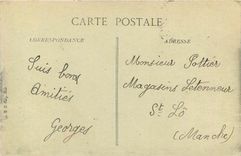 CARTE POSTALE
CORRESPONDANCE
ADRESSE
Suis bons
Amitiés
Georges
Monsieur Pottier
Magasins Letenneur
St Lô
(Manche)